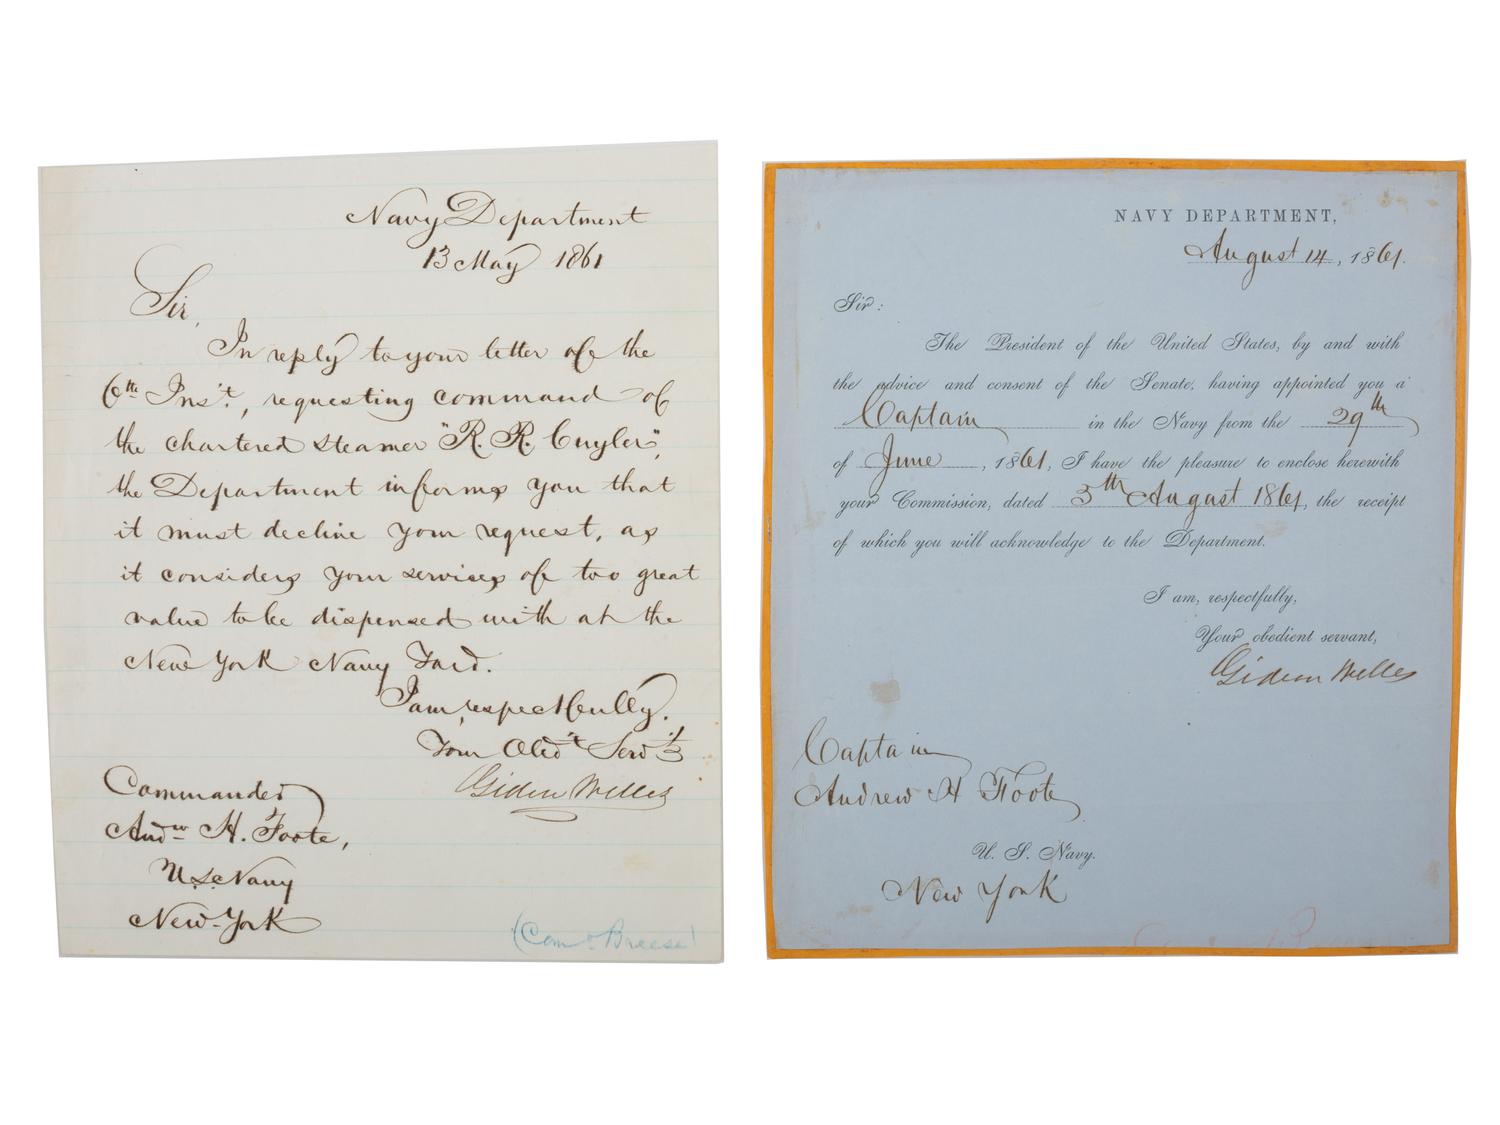 Navy Department
13 May 1861
Sir,
In reply to your letter of the
6th Inst., requesting command of
the chartered steamer "R. R. Cuyler",
the Department informs you that
it must decline your request, as
it considers your services of too great
value to be dispensed with at the
New York Navy Yard.
I am, respectfully,
Your Obedt Servt
Gideon Welles
Commander
Andw H. Foote,
U.S. Navy
New-York
(Como Breese)
NAVY DEPARTMENT,
August 14, 1861.
Sir:
The President of the United States, by and with
the advice and consent of the Senate, having appointed you a
Captain in the Navy from the 29th
of June, 1861, I have the pleasure to enclose herewith
your Commission, dated 5th August 1861, the receipt
of which you will acknowledge to the Department.
I am, respectfully,
Your obedient servant,
Gideon Welles
Captain
Andrew H Foote
U. S. Navy.
New York